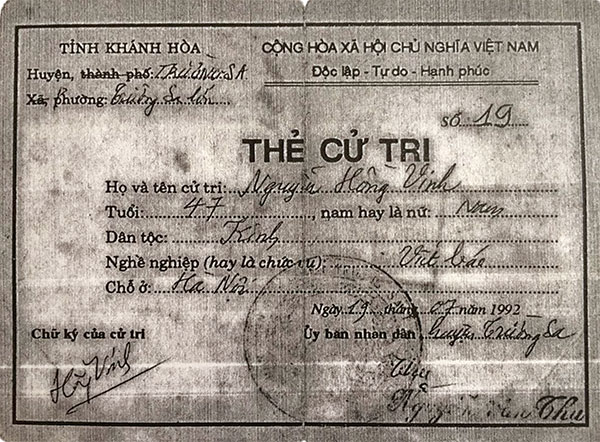 TỈNH KHÁNH HÒA
CỘNG HÒA XÃ HỘI CHỦ NGHĨA VIỆT NAM
Huyện, thành phố: TRƯỜNG SA
Độc lập - Tự do - Hạnh phúc
Xã, phường: Trường Sa lớn
số 19
THẺ CỬ TRI
Họ và tên cử tri: Nguyễn Hồng Vinh
Tuổi: 47, nam hay là nữ: Nam
Dân tộc: Kinh
Nghề nghiệp (hay là chức vụ): Viết báo
Chỗ ở: Hà Nội
Ngày 19 tháng 07 năm 1992
Chữ ký của cử tri
Ủy ban nhân dân huyện Trường Sa
Hg Vinh
Nguyễn Thu